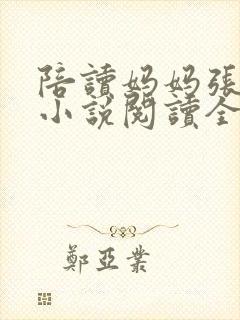 陪讀妈妈張
小說閱讀全
鄭亞業